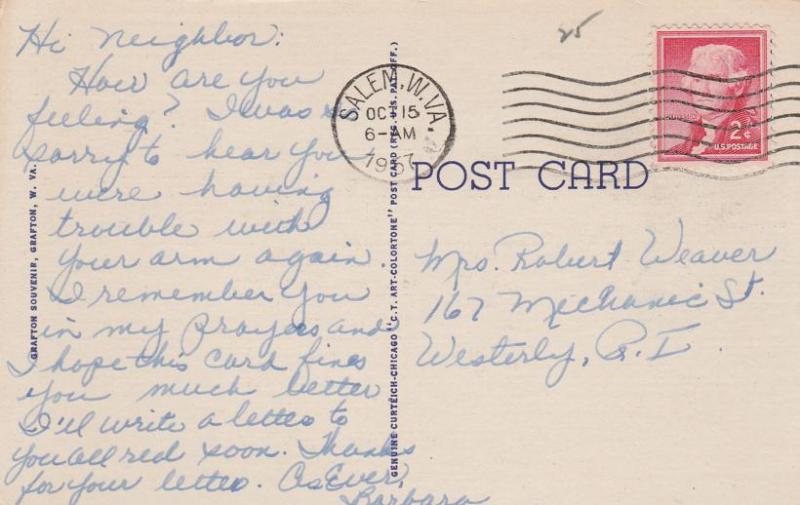 Hi Neighbor:
How are you
feeling? I was
sorry to hear you
were having
trouble with
your arm again.
I remember you
in my Prayers and
I hope this card fines
you much better
I'll write a letter to
you all real soon. Thanks
for your letter. As Ever,
Barbara
GRAFTON SOUVENIR, GRAFTON, W. VA.
GENUINE CURTEICH-CHICAGO "C. T. ART-COLORTONE" POST CARD (REG. U.S. PAT. OFF.)
25
SALEM, W. VA.
OCT 15
6- AM
1957
2¢
U.S. POSTAGE
POST CARD
Mrs. Robert Weaver
167 Mechanic St.
Westerly, R. I